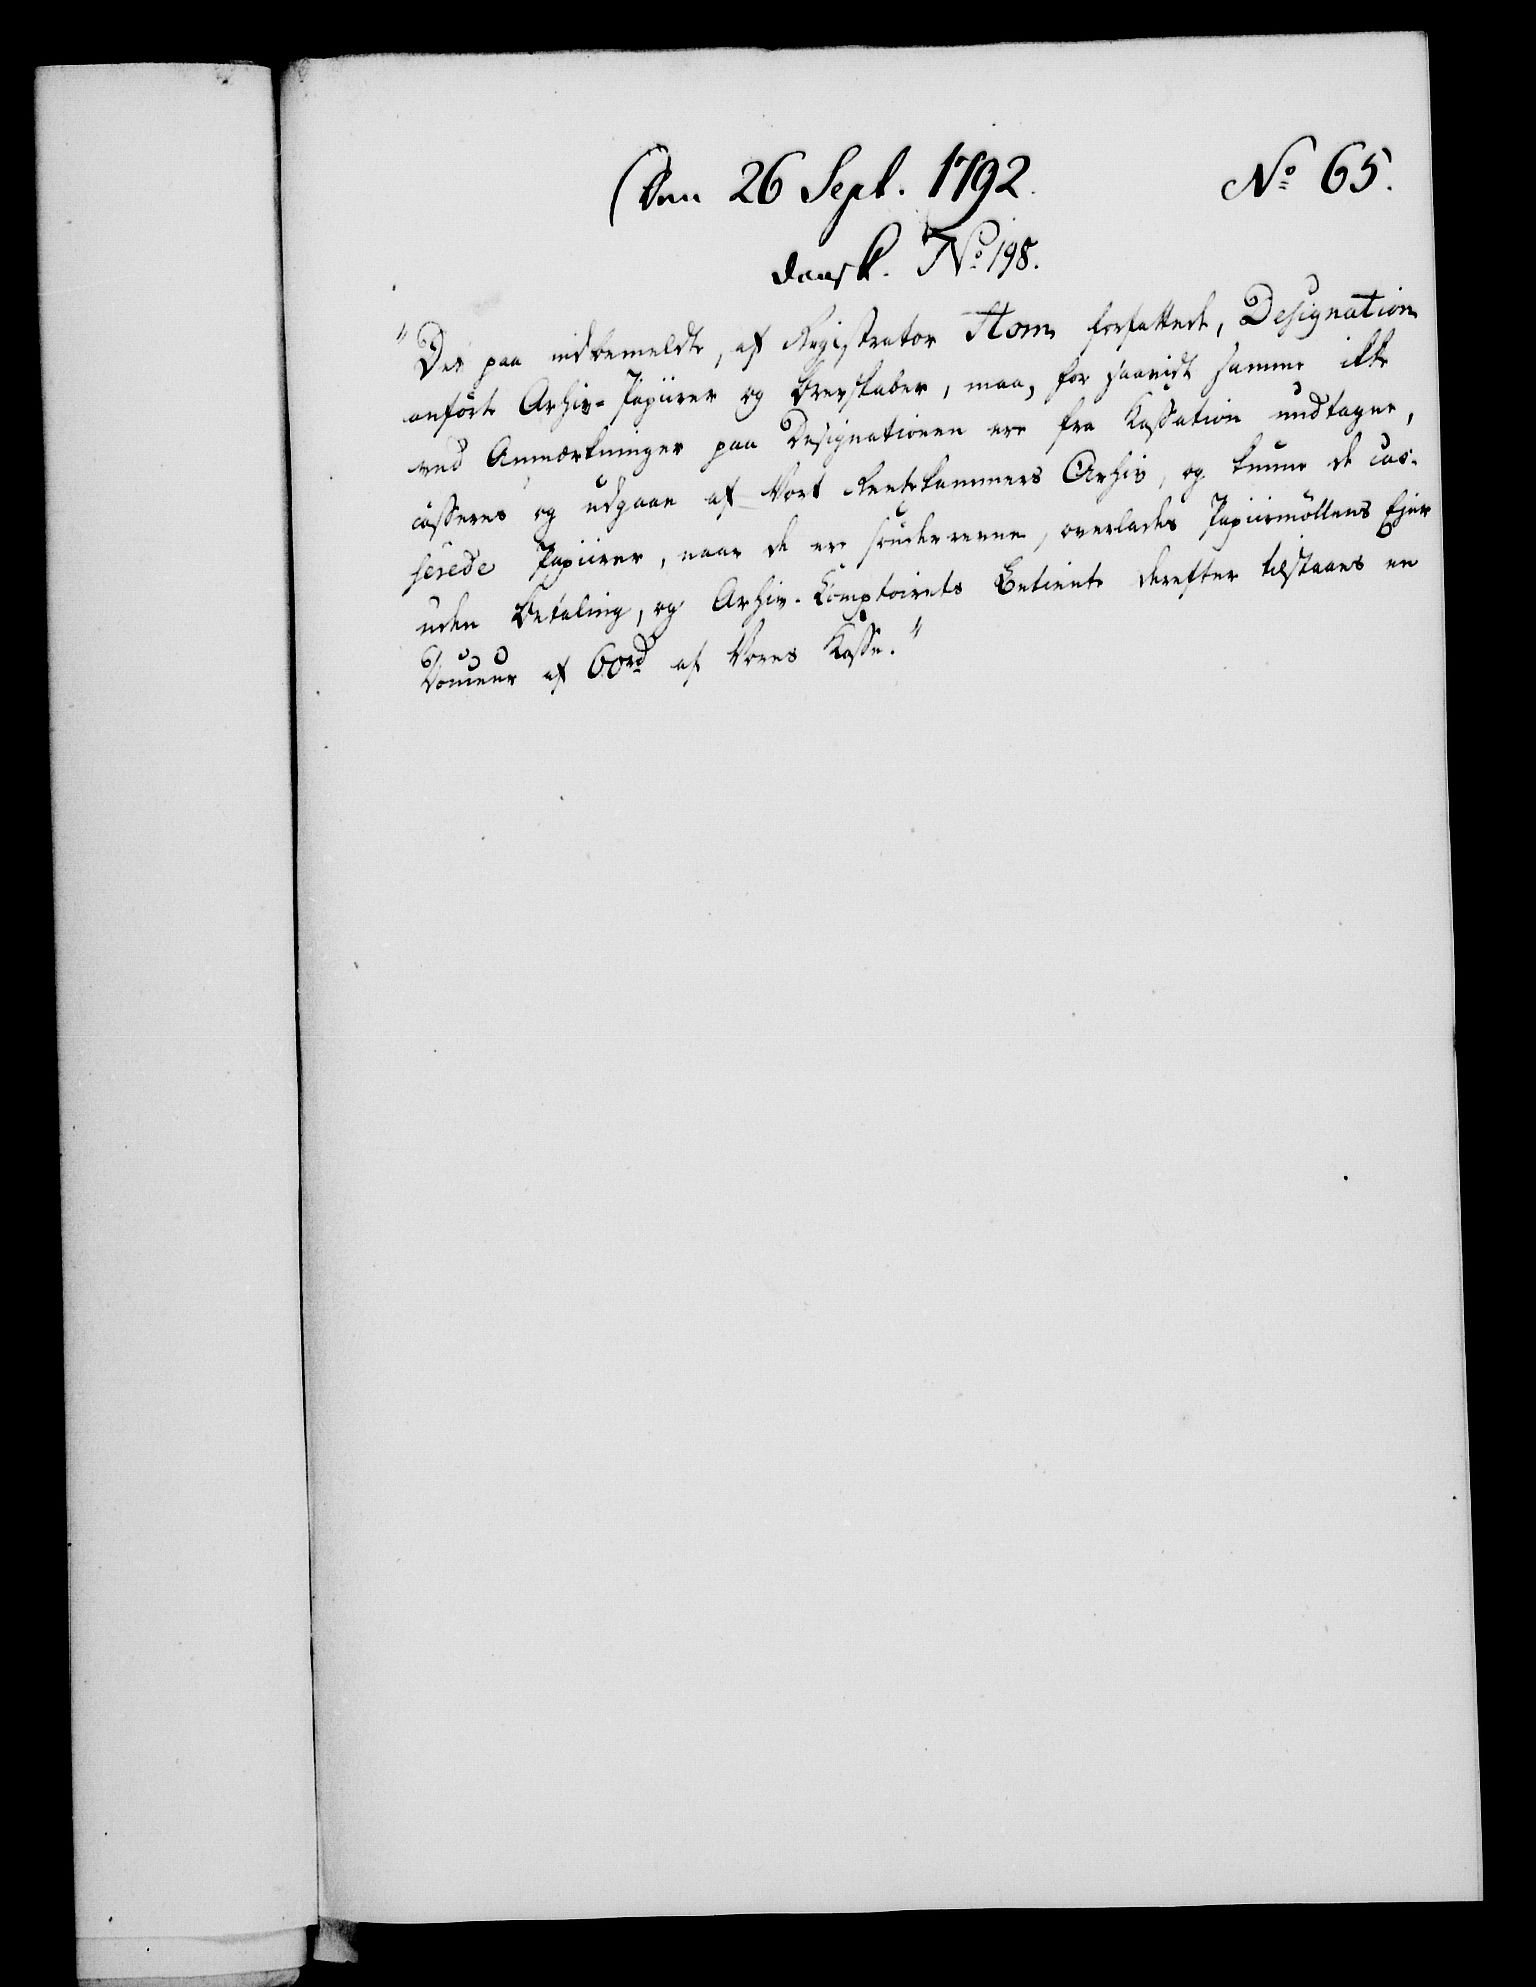 Den 26 Sept. 1792. No 65.
dansk. No 198.
"De paa indbemeldte, af Registrator Stom forfattede, Designation
anførte Arhiv-Papiirer og Brevskaber, maa, for saavidt samme ikke
ved Anmærkninger paa Designationen ere fra Kassation undtagne,
casseres og udgaae af Vort Rentekammers Arhiv, og kunne de cas-
serede Papiirer, naar de ere sönderrevne, overlades Papiirmöllens Ejer
uden Betaling, og Arhiv-Comptoirets Betiente derefter tilstaaes en
Douceur af 60 rd af Vores Kasse."